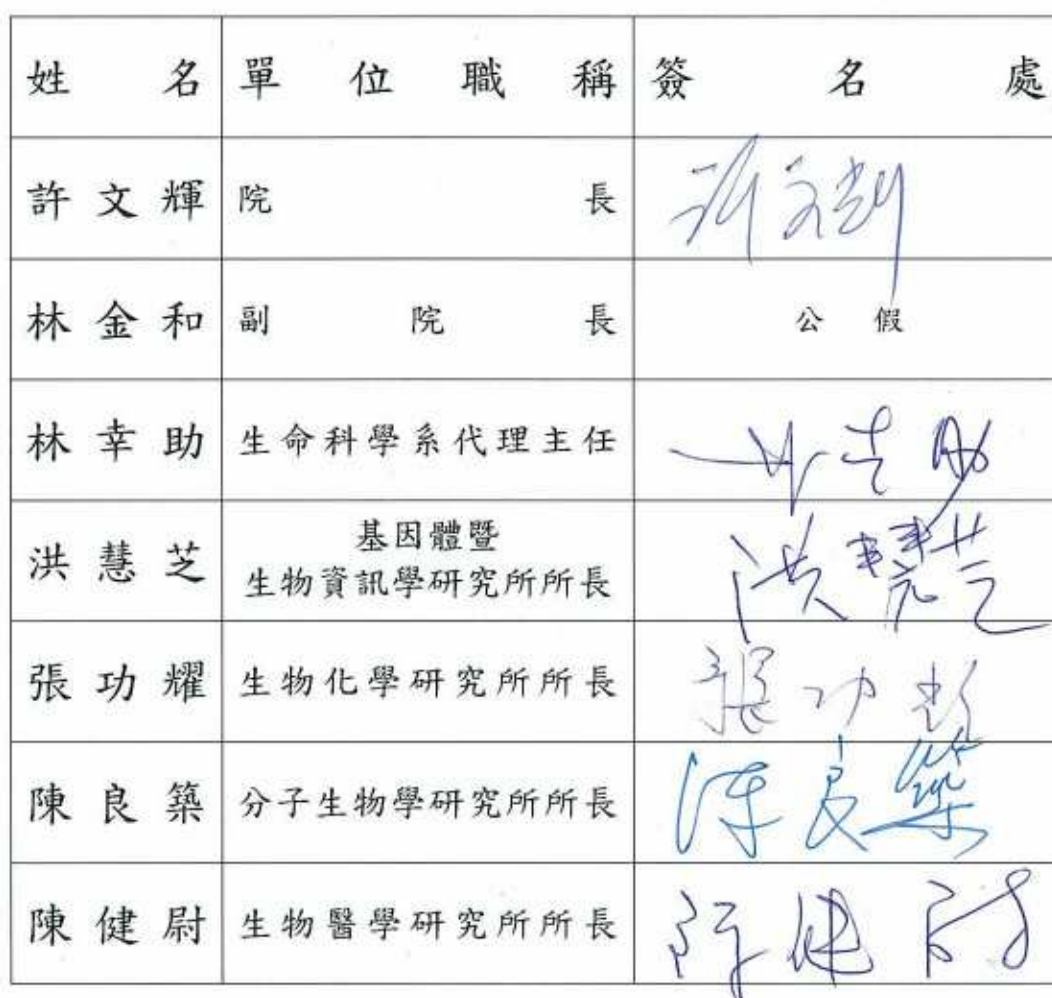 姓名 單位職稱 簽名處
許文輝 院長 許文輝
林金和 副院長 公假
林幸助 生命科學系代理主任 林幸助
洪慧芝 基因體暨 洪慧芝
生物資訊學研究所所長
張功耀 生物化學研究所所長 張功耀
陳良築 分子生物學研究所所長 陳良築
陳健尉 生物醫學研究所所長 陳健尉